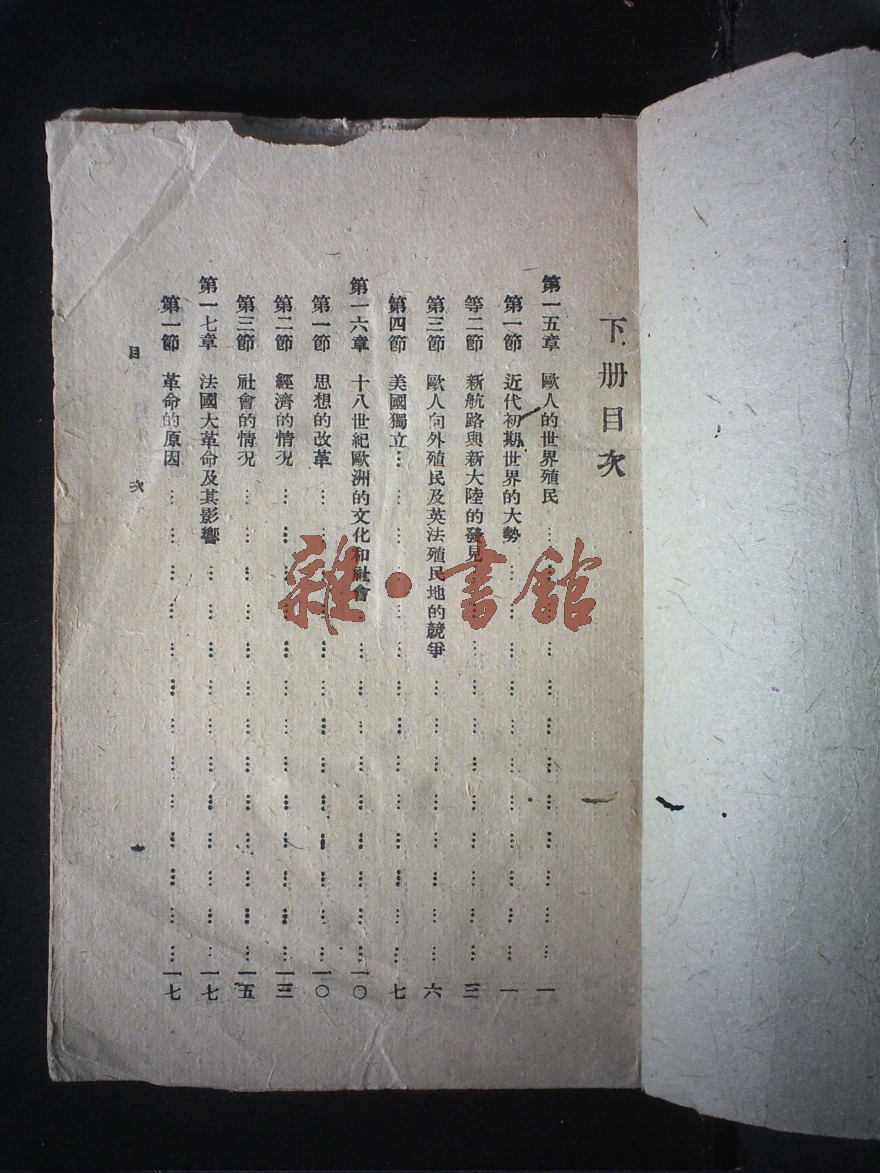 下册目次
第一五章 歐人的世界殖民……一
第一節 近代初期世界的大勢……一
等二節 新航路與新大陸的發見……三
第三節 歐人向外殖民及英法殖民地的競爭……六
第四節 美國獨立……七
第一六章 十八世紀歐洲的文化和社會……一〇
第一節 思想的改革……一〇
第二節 經濟的情况……一三
第三節 社會的情况……一五
第一七章 法國大革命及其影響……一七
第一節 革命的原因……一七
目次
雜·書館